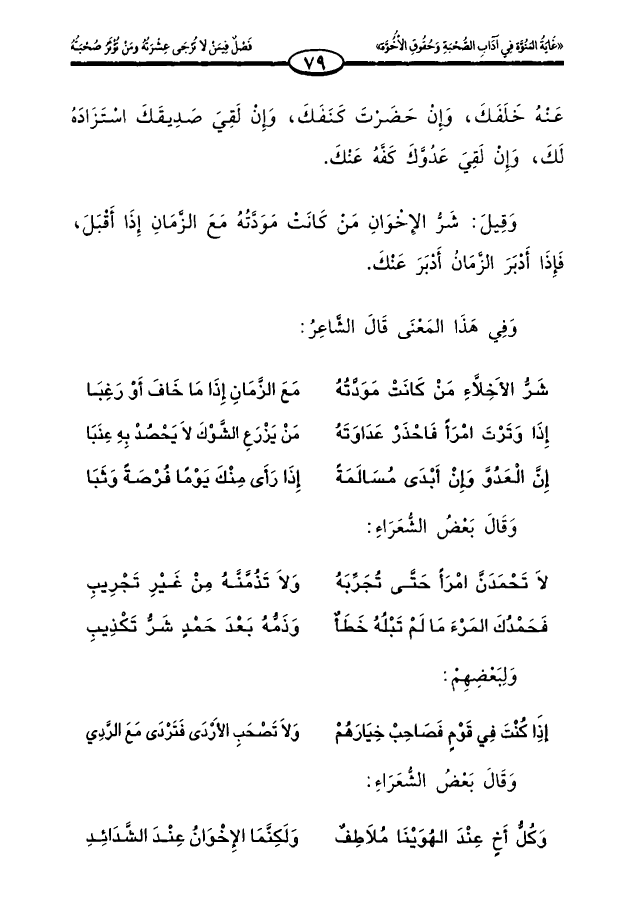 «غَايَةُ المُنُوَّة فِي آدَابِ الصُّحْبَةِ وَحُقُوقِ الأُخُوَّة» فَصْلٌ فِيمَنْ لا تُرْجَى عِشْرَتُهُ ومَنْ تُؤْثَرُ صُحْبَتُهُ
٧٩
عَنْهُ خَلَفَكَ، وَإِنْ حَضَرْتَ كَنَفَكَ، وَإِنْ لَقِيَ صَدِيقَكَ اسْتَزَادَهُ
لَكَ، وَإِنْ لَقِيَ عَدُوَّكَ كَفَّهُ عَنْكَ.
وَقِيلَ: شَرُّ الإِخْوَانِ مَنْ كَانَتْ مَوَدَّتُهُ مَعَ الزَّمَانِ إِذَا أَقْبَلَ،
فَإِذَا أَدْبَرَ الزَّمَانُ أَدْبَرَ عَنْكَ.
وَفِي هَذَا المَعْنَى قَالَ الشَّاعِرُ:
شَرُّ الأَخِلَّاءِ مَنْ كَانَتْ مَوَدَّتُهُ مَعَ الزَّمَانِ إِذَا مَا خَافَ أَوْ رَغِبَا
إِذَا وَتَرْتَ امْرَأً فَاحْذَرْ عَدَاوَتَهُ مَنْ يَزْرَعِ الشَّوْكَ لاَ يَحْصُدْ بِهِ عِنَبَا
إِنَّ الْعَدُوَّ وَإِنْ أَبْدَى مُسَالَمَةً إِذَا رَأَى مِنْكَ يَوْمًا فُرْصَةً وَثَبَا
وَقَالَ بَعْضُ الشُّعَرَاءِ:
لاَ تَحْمَدَنَّ امْرَأً حَتَّى تُجَرِّبَهُ وَلاَ تَذُمَّنَّهُ مِنْ غَيْرِ تَجْرِيبِ
فَحَمْدُكَ المَرْءَ مَا لَمْ تَبْلُهُ خَطَأٌ وَذَمُّهُ بَعْدَ حَمْدٍ شَرُّ تَكْذِيبِ
وَلِبَعْضِهِمْ:
إِذَا كُنْتَ فِي قَوْمٍ فَصَاحِبْ خِيَارَهُمْ وَلاَ تَصْحَبِ الأَرْدَى فَتَرْدَى مَعَ الرَّدِي
وَقَالَ بَعْضُ الشُّعَرَاءِ:
وَكُلُّ أَخٍ عِنْدَ الهُوَيْنَا مُلاَطِفٌ وَلَكِنَّمَا الإِخْوَانُ عِنْدَ الشَّدَائِدِ